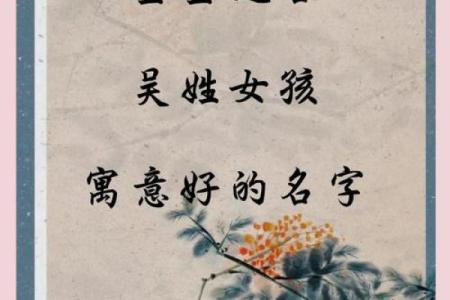 吴姓女孩
寓意好的名字